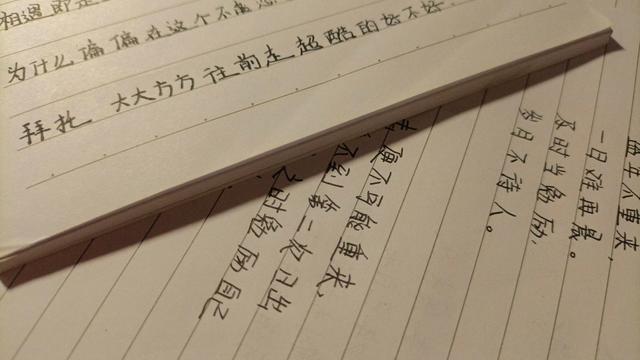 相遇即是
为什么偏偏在这个不
拜托 大大方方往前走超酷的好不好.
盛年不重来,
一日难再晨。
及时当勉励,
岁月不待人。
去便不可能重来,
不到第二次日出
之时勉励自己